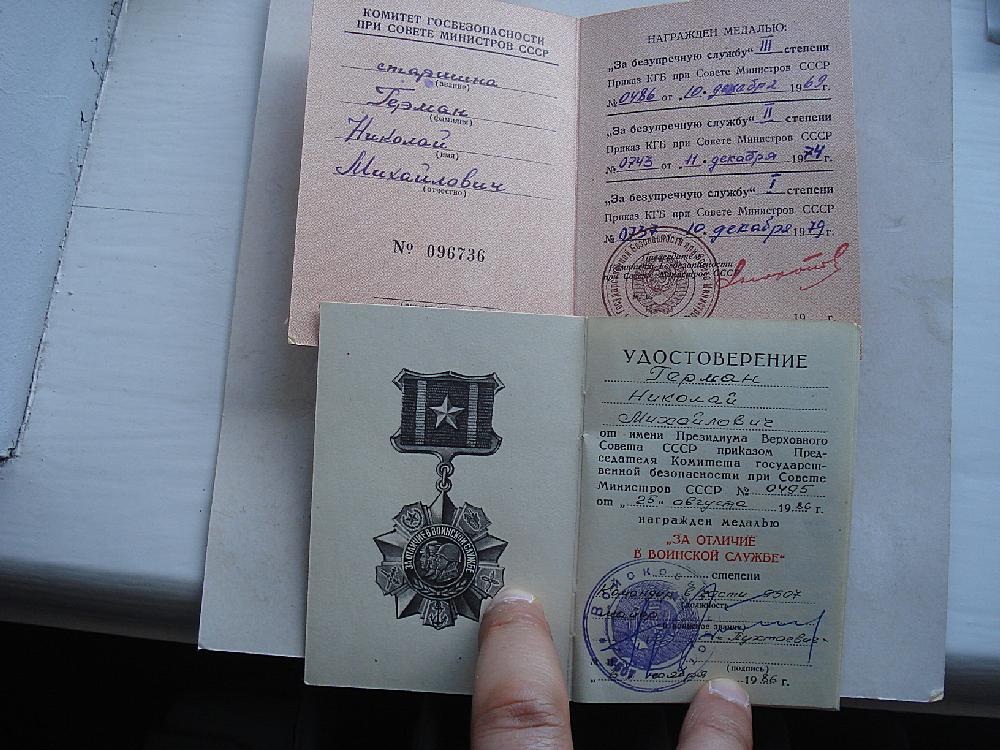 КОМИТЕТ ГОСБЕЗОПАСНОСТИ
ПРИ СОВЕТЕ МИНИСТРОВ СССР
старшина
(звание)
Герман
(фамилия)
Николай
(имя)
Михайлович
(отчество)
№ 096736
НАГРАЖДЕН МЕДАЛЬЮ:
„За безупречную службу“ III степени
Приказ КГБ при Совете Министров СССР
№ 0486 от 10. декабря 1969 г.
„За безупречную службу“ II степени
Приказ КГБ при Совете Министров СССР
№ 0743 от 11. декабря 1974 г.
„За безупречную службу“ I степени
Приказ КГБ при Совете Министров СССР
№ 0737 10. декабря 1979 г.
Председатель
Комитета госбезопасности
при Совете Министров СССР
19 г.
ЗА ОТЛИЧИЕ В ВОИНСКОЙ СЛУЖБЕ
УДОСТОВЕРЕНИЕ
Герман
Николай
Михайлович
от имени Президиума Верховного
Совета СССР приказом Пред-
седателя Комитета государст-
венной безопасности при Совете
Министров СССР № 0495
от „25“ августа 1986 г.
награжден медалью
„ЗА ОТЛИЧИЕ
В ВОИНСКОЙ СЛУЖБЕ“
степени
Командир в/части 9507
(должность)
майор
(воинское звание)
(подпись)
ноября 1986 г.